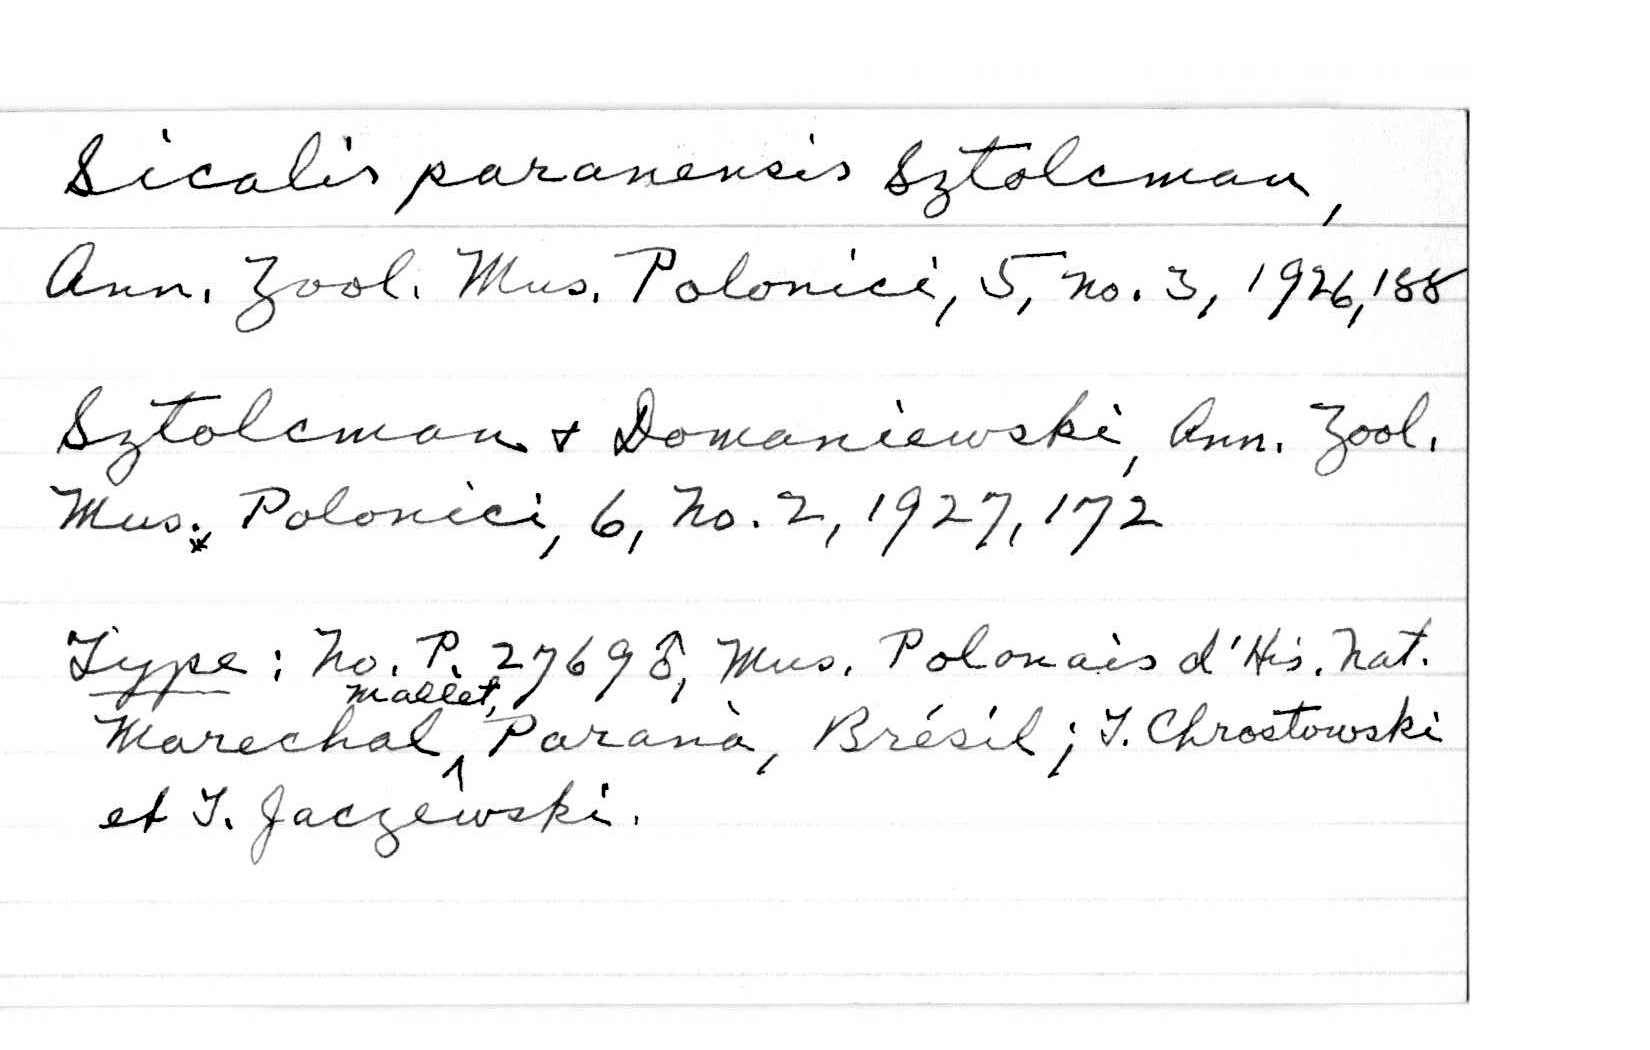 Sicalis paranensis Sztolcman,
Ann. Zool. Mus. Polonici, 5, No. 3, 1926, 188
Sztolcman + Domaniewski, Ann. Zool.
Mus. Polonici, 6, No. 2, 1927, 172
Type: No. P. 2769 ♂, Mus. Polonais d'His. Nat.
Marechal Mallet, Paranà, Brésil; T. Chrostowski
et T. Jaczewski.